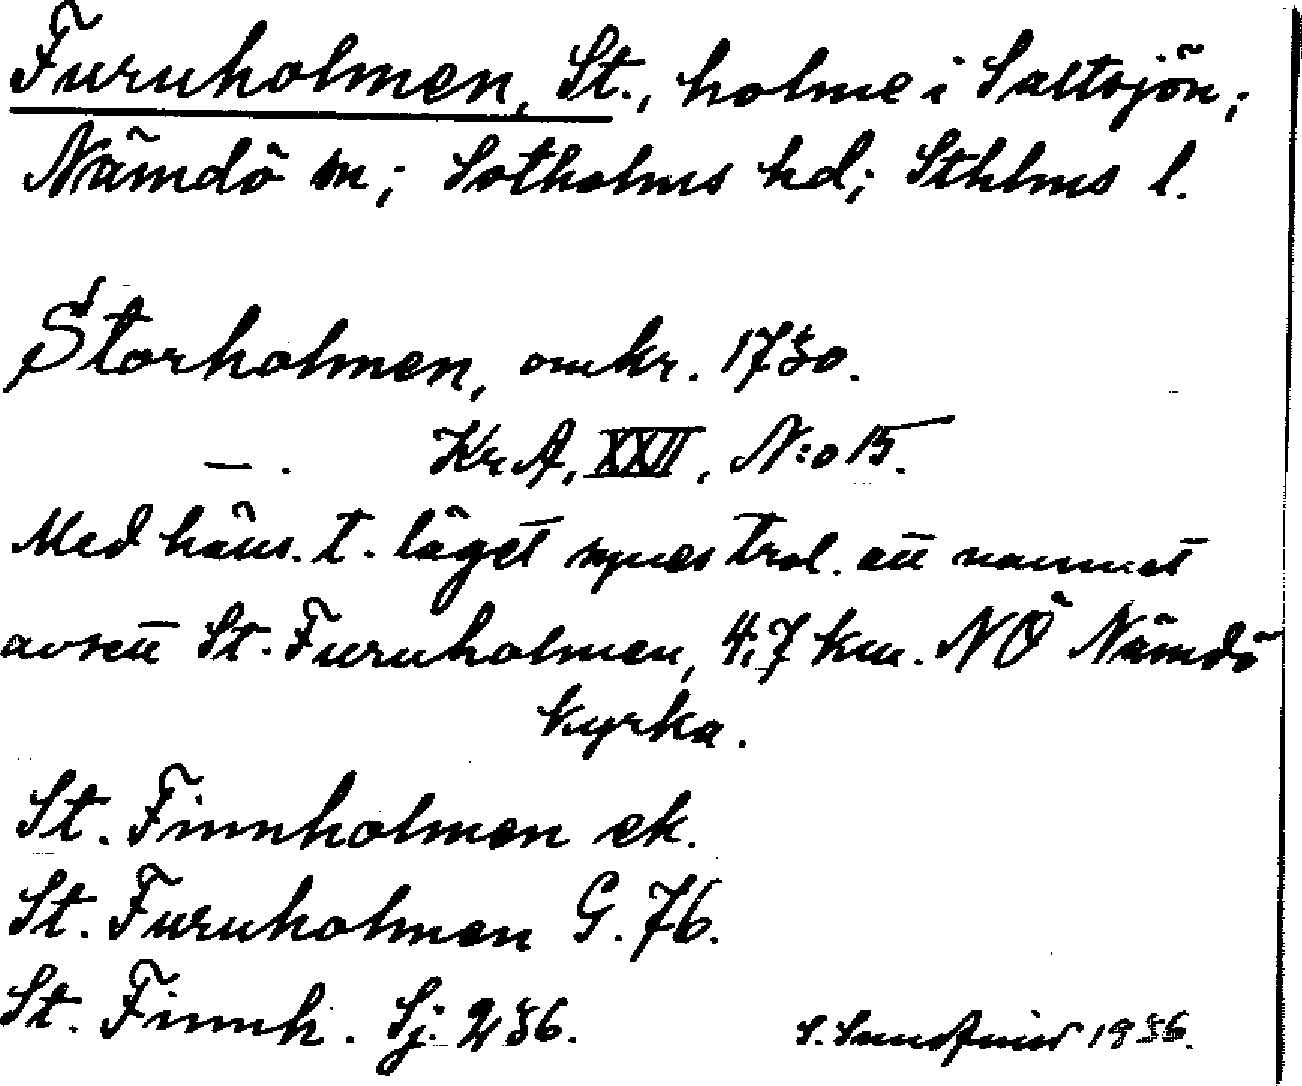 Furuholmen, St., holme i Saltsjön;
Nämdö sn; Sotholms hd; Sthlms l.
Storholmen, omkr. 1730.
— . Kr. A, XXII, N:o 15.
Med häns. t. läget synes trol. att namnet
avsett St. Furuholmen, 4,7 km. NÖ Nämdö
kyrka.
St. Finnholmen ek.
St. Furuholmen G. 76.
St. Finnh. Sj. 236.
S. 1936.